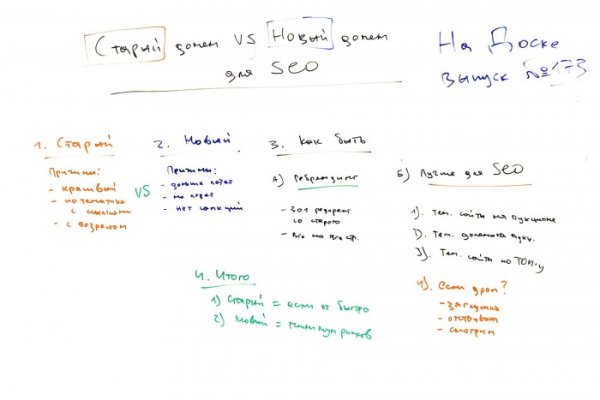 Старый домен VS Новый домен
для SEO
На Доске
выпуск №173
1. Старый
Причины:
- красивый
- по тематике
с ссылками
- с возрастом
VS
2. Новый
Причины:
- дольше
- не
- нет санкций
3. Как быть
А) Ребрендинг
- 301 редирект
со старого
- Все на все стр.
Б) Лучше для SEO
1). Тем. сайты на аукционе
2). Тем. домена аукц.
3). Тем. сайты по ТОП-у
4). если дроп?
- заглушка
- отстаиваем
- смотрим
4. Итого
1) Старый = если ок быстро
2) Новый = минимум рисков